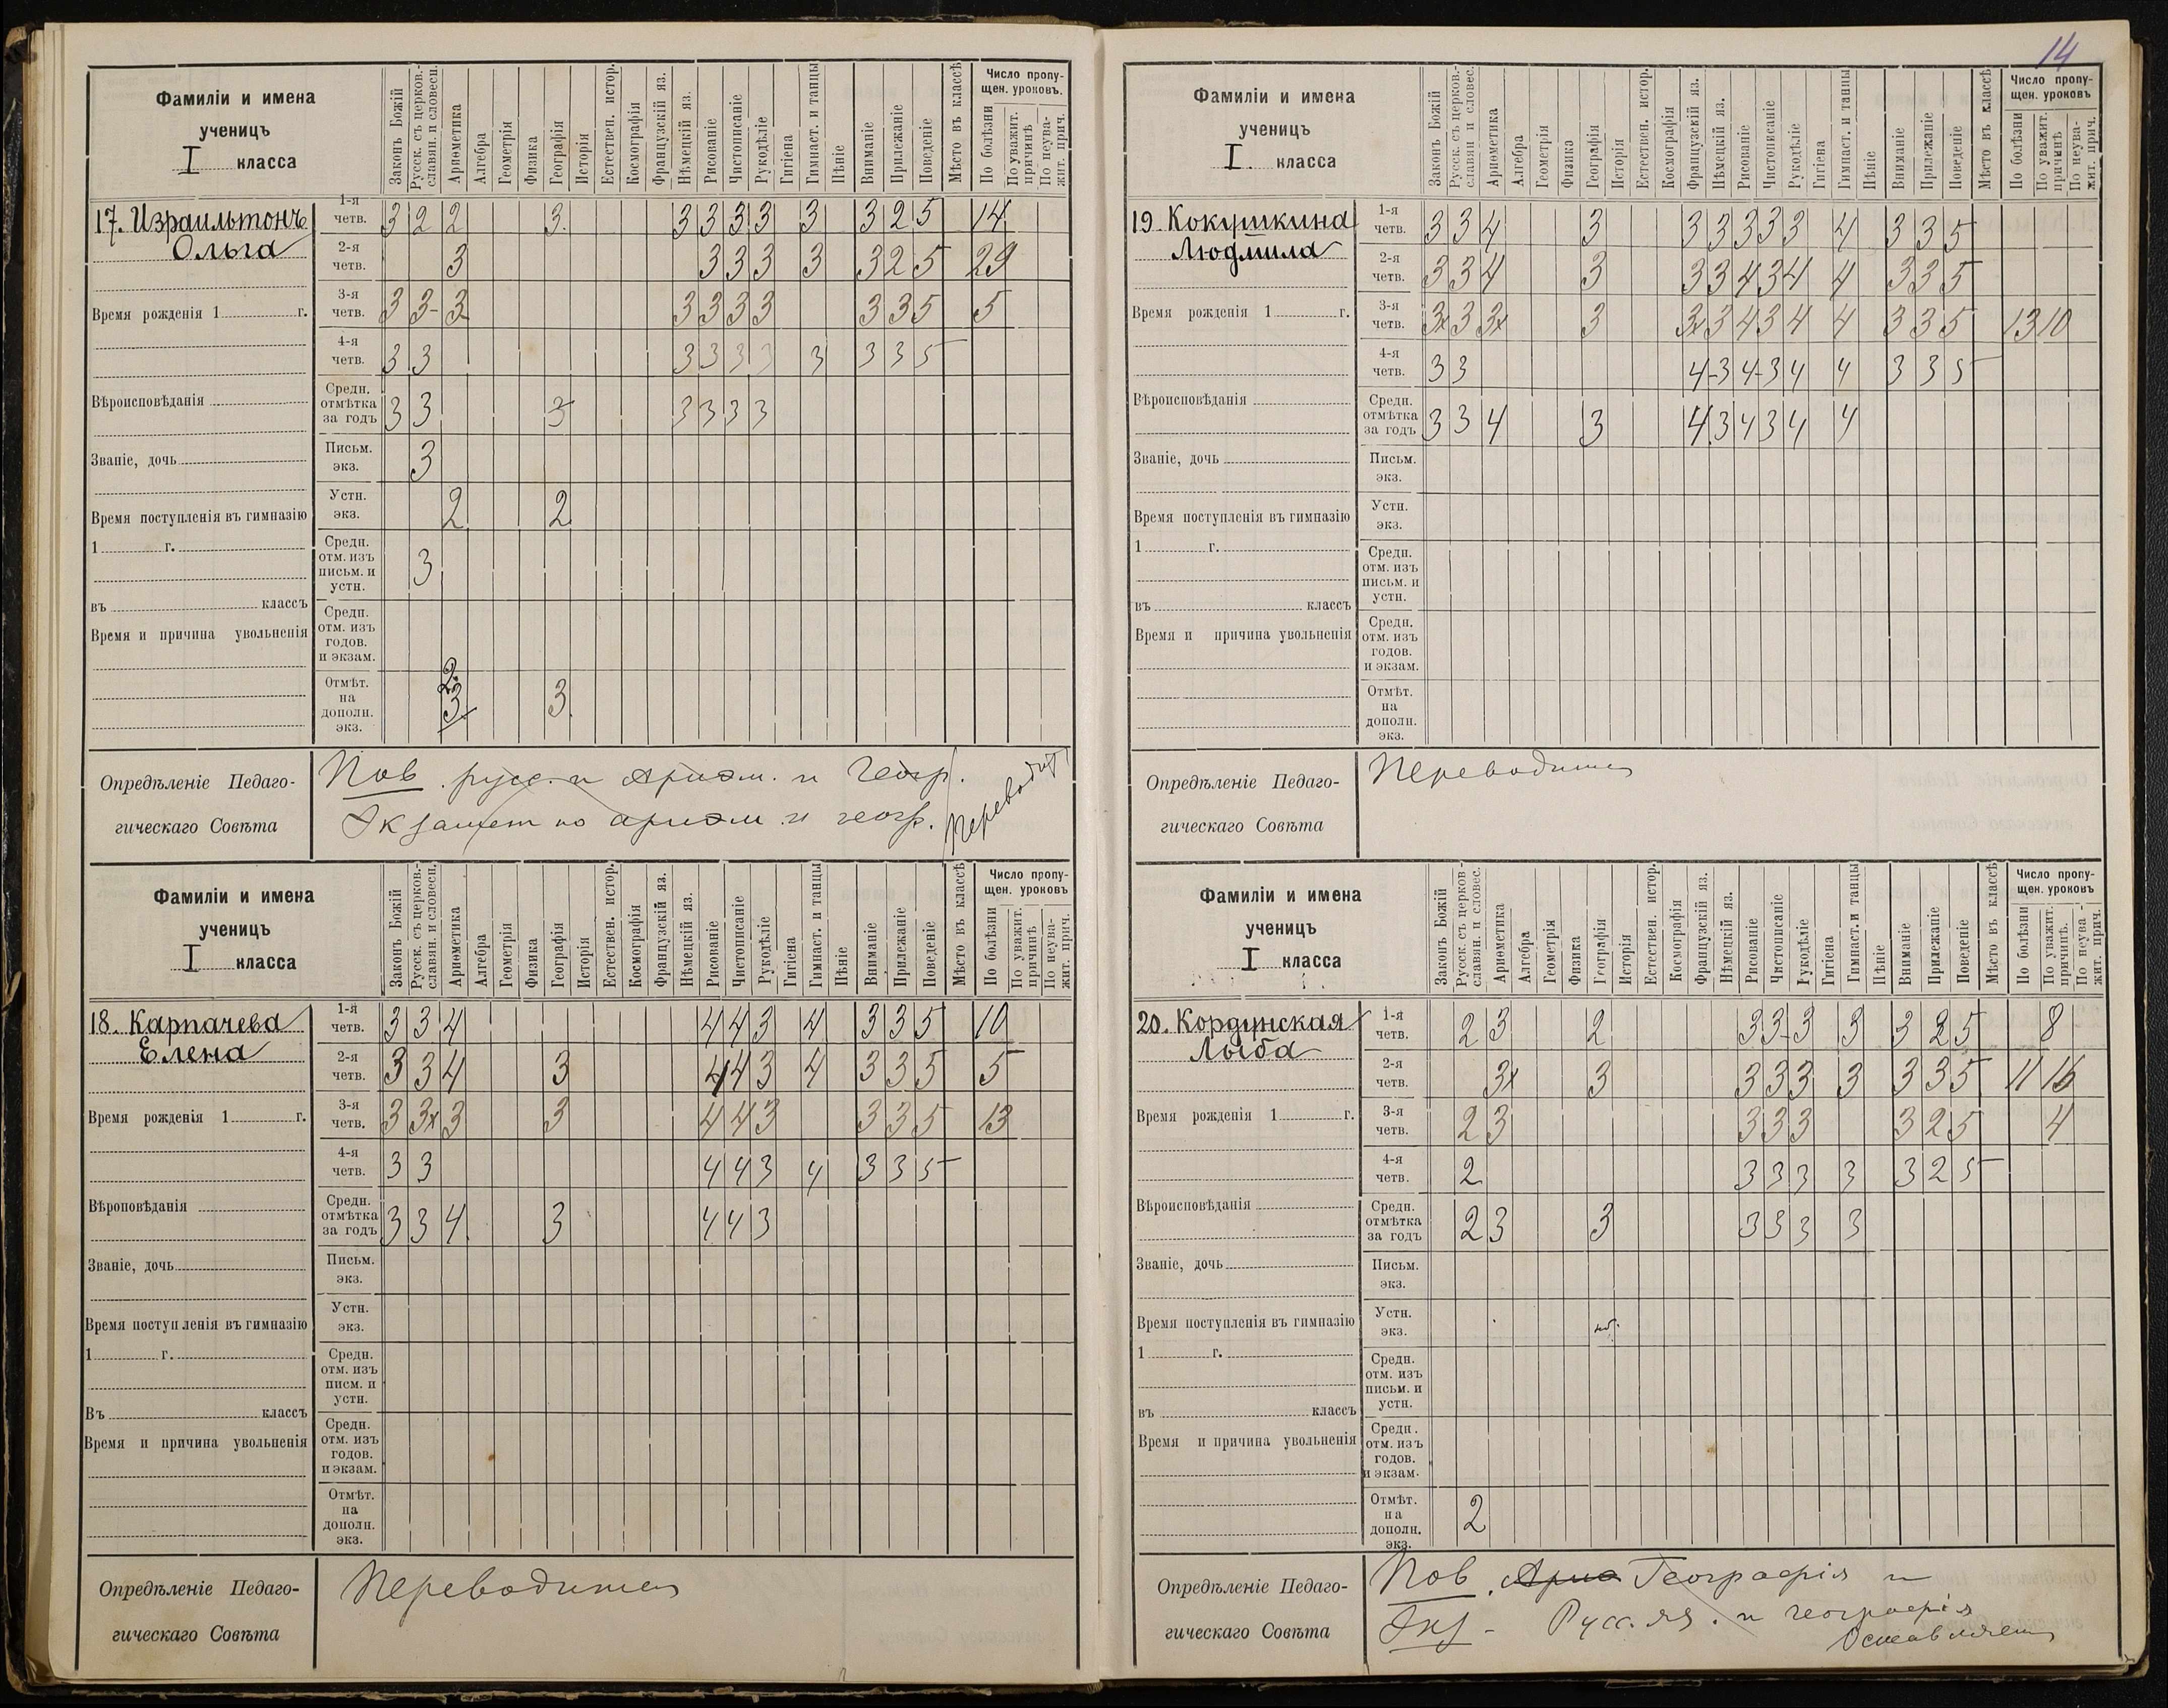 14
Фамиліи и имена
ученицъ
I класса
Законъ Божій
Русск. съ церков.-
славян. и словесн.
Ариѳметика
Алгебра
Геометрія
Физика
Географія
Исторія
Естествен. истор.
Космографія
Французскій яз.
Нѣмецкій яз.
Рисованіе
Чистописаніе
Рукодѣліе
Гигіена
Гимнаст. и танцы
Пѣніе
Вниманіе
Прилежаніе
Поведеніе
Мѣсто въ классѣ
Число пропу-
щен. уроковъ.
По болѣзни
По уважит.
причинѣ
По неува-
жит. прич.
17. Израильтонъ
Ольга
1-я четв. 3 2 2 3 3 3 3 3 3 3 2 5 14
2-я четв. 3 3 3 3 3 3 2 5 29
3-я четв. 3 3- 3 3 3 3 3 3 3 5 5
4-я четв. 3 3 3 3 3 3 3 3 3 5
Средн. отмѣтка за годъ 3 3 3 3 3 3 3
Письм. экз. 3
Устн. экз. 2 2
Средн. отм. изъ письм. и устн. 3
Средн. отм. изъ годов. и экзам.
Отмѣт. на дополн. экз. 2 3 3
Время рожденія 1 г.
Вѣроисповѣданія
Званіе, дочь
Время поступленія въ гимназію
1 г.
въ классъ
Время и причина увольненія
Опредѣленіе Педаго-
гическаго Совѣта
Пов. русс. и ариѳм. и геогр.
Экзамен по ариѳм. и геогр.
Переводит
Фамиліи и имена
ученицъ
I класса
Законъ Божій
Русск. съ церков.-
славян. и словесн.
Ариѳметика
Алгебра
Геометрія
Физика
Географія
Исторія
Естествен. истор.
Космографія
Французскій яз.
Нѣмецкій яз.
Рисованіе
Чистописаніе
Рукодѣліе
Гигіена
Гимнаст. и танцы
Пѣніе
Вниманіе
Прилежаніе
Поведеніе
Мѣсто въ классѣ
Число пропу-
щен. уроковъ
По болѣзни
По уважит.
причинѣ
По неува-
жит. прич.
18. Карпачева
Елена
1-я четв. 3 3 4 4 4 3 4 3 3 5 10
2-я четв. 3 3 4 3 4 4 3 4 3 3 5 5
3-я четв. 3 3х 3 3 4 4 3 3 3 5 13
4-я четв. 3 3 4 4 3 4 3 3 5
Средн. отмѣтка за годъ 3 3 4 3 4 4 3
Письм. экз.
Устн. экз.
Средн. отм. изъ писм. и устн.
Средн. отм. изъ годов. и экзам.
Отмѣт. на дополн. экз.
Время рожденія 1 г.
Вѣроповѣданія
Званіе, дочь
Время поступленія въ гимназію
1 г.
Въ классъ
Время и причина увольненія
Опредѣленіе Педаго-
гическаго Совѣта
Переводится
Фамиліи и имена
ученицъ
I. класса
Законъ Божій
Русск. съ церков.-
славян и словес.
Ариѳметика
Алгебра
Геометрія
Физика
Географія
Исторія
Естествен. истор.
Космографія
Французскій яз.
Нѣмецкій яз.
Рисованіе
Чистописаніе
Рукодѣліе
Гигіена
Гимнаст. и танцы
Пѣніе
Вниманіе
Прилежаніе
Поведеніе
Мѣсто въ классѣ
Число пропу-
щен. уроковъ
По болѣзни
По уважит.
причинѣ
По неува-
жит. прич.
19. Кокушкина
Людмила
1-я четв. 3 3 4 3 3 3 3 3 3 4 3 3 5
2-я четв. 3 3 4 3 3 3 4 3 4 4 3 3 5
3-я четв. 3х 3 3х 3 3х 3 4 3 4 4 3 3 5 13 10
4-я четв. 3 3 4- 3 4- 3 4 4 3 3 5
Средн. отмѣтка за годъ 3 3 4 3 4 3 4 3 4 4
Письм. экз.
Устн. экз.
Средн. отм. изъ письм. и устн.
Средн. отм. изъ годов. и экзам.
Отмѣт. на дополн. экз.
Время рожденія 1 г.
Вѣроисповѣданія
Званіе, дочь
Время поступленія въ гимназію
1 г.
въ классъ
Время и причина увольненія
Опредѣленіе Педаго-
гическаго Совѣта
Переводится
Фамиліи и имена
ученицъ
I класса
Законъ Божій
Русск. съ церков-
славян. и словес.
Ариѳметика
Алгебра
Геометрія
Физика
Географія
Исторія
Естествен. истор.
Космографія
Французскій яз.
Нѣмецкій яз.
Рисованіе
Чистописаніе
Рукодѣліе
Гигіена
Гимнаст. и танцы
Пѣніе
Вниманіе
Прилежаніе
Поведеніе
Мѣсто въ классѣ
Число пропу-
щен. уроковъ
По болѣзни
По уважит.
причинъ.
По неува-
жит. прич.
20. Кордунская
Лыба
1-я четв. 2 3 2 3 3- 3 3 3 2 5 8
2-я четв. 3х 3 3 3 3 3 3 3 5 11 16
3-я четв. 2 3 3 3 3 3 2 5 4
4-я четв. 2 3 3 3 3 3 2 5
Средн. отмѣтка за годъ 2 3 3 3 3 3 3
Письм. экз.
Устн. экз. нб.
Средн. отм. изъ письм. и устн.
Средн. отм. изъ годов. и экзам.
Отмѣт. на дополн. экз. 2
Время рожденія 1 г.
Вѣроисповѣданія
Званіе, дочь
Время поступленія въ гимназію
1 г.
въ классъ
Время и причина увольненія
Опредѣленіе Педаго-
гическаго Совѣта
Пов. Ариѳ Географія и
Экз - Русс. яз. и географія
Оставляется